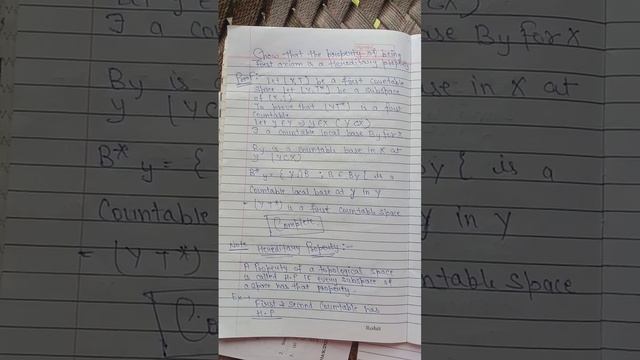 Show that the property of being
first axiom is a Hereditary property
Proof:- Let (X,T) be a first countable
space let (Y,T*) be a subspace
of (X,T)
To prove that (Y,T*) is a first
countable
Let y ∈ Y ⇒ y ∈ X (Y⊂X)
∃ a countable local base By for X
By is a countable base in X at
y (Y⊂X)
B*y = { Y∩B : B ∈ By { is a
countable local base at y in Y
= (Y T*) is a first countable space
Complete
Note Hereditary Property:-
A Property of a topological space
is called H.P if every subspace of
a space has that property.
Ex-
First & second countable has
H.P